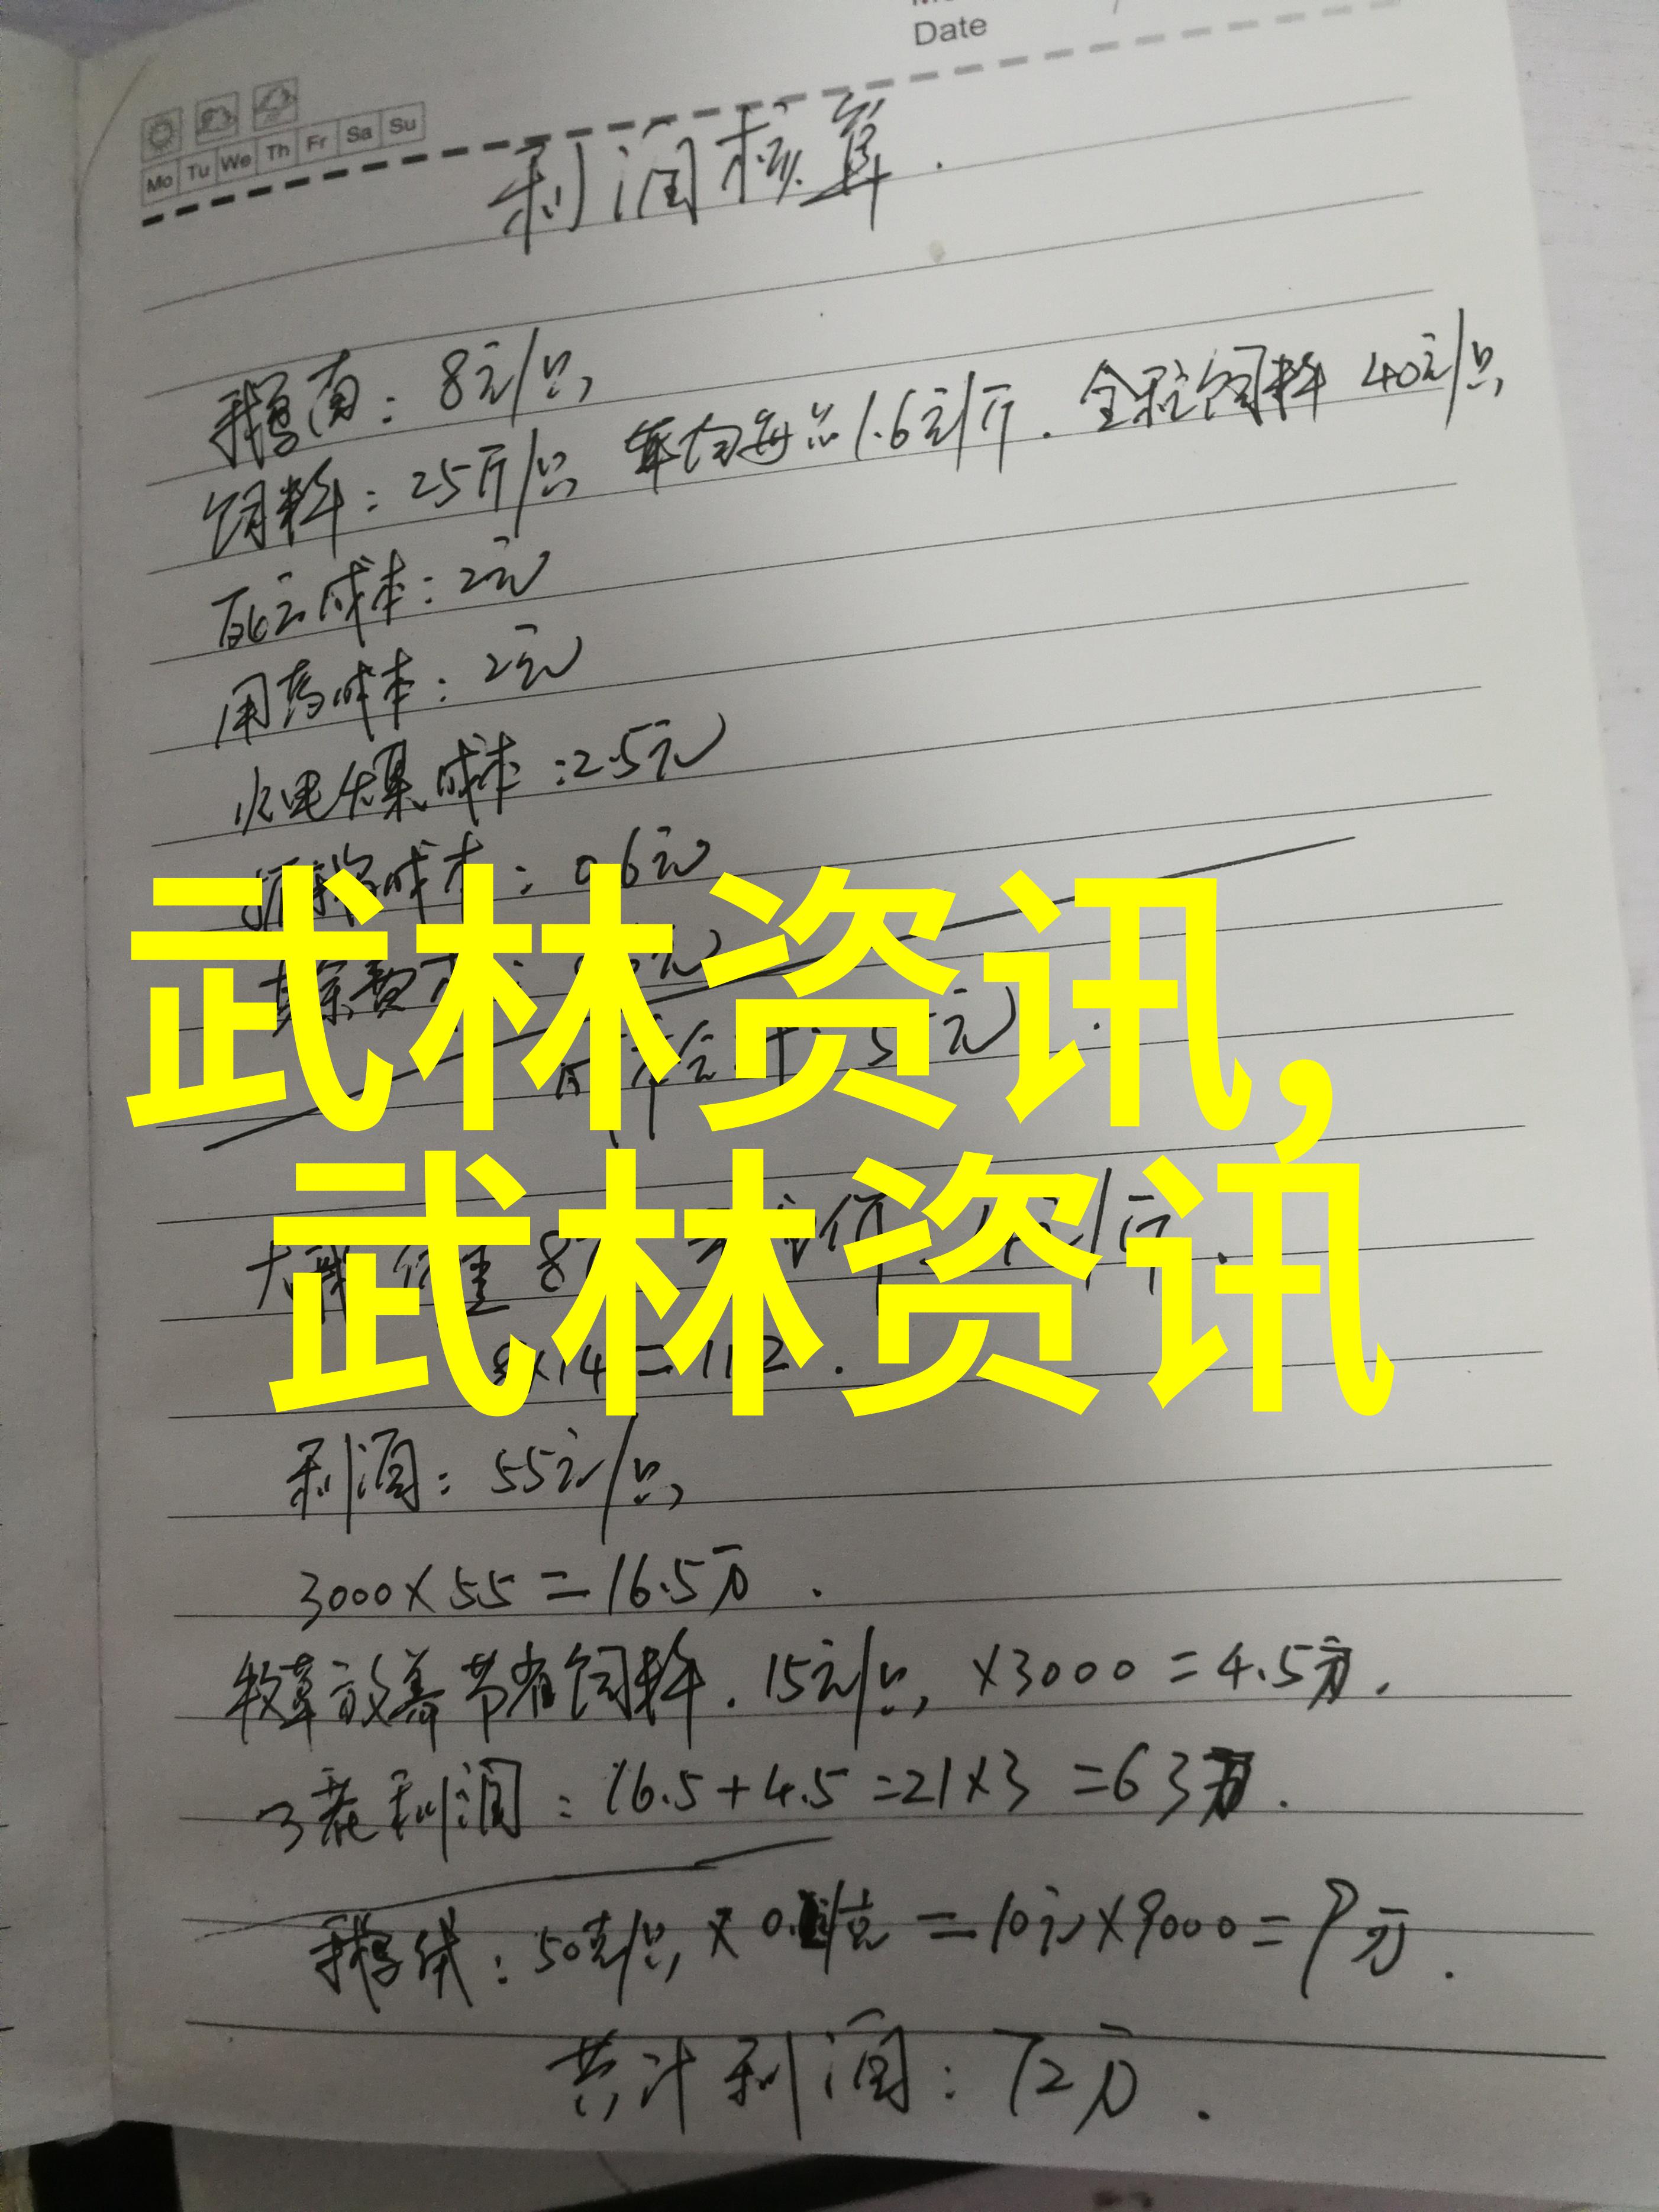 Date
Mo Tu We Th Fr Sa Su
利润核算.
鹅苗：8元/只
饲料：25斤/只 平均每斤1.6元/斤. 全程饲料 40元/只
死亡成本：2元
用药成本：2元
水电煤成本：2.5元
成本：0.6元
武林资讯,
武林资讯
大鹅 重 8
8×14=112.
利润：55元/只
3000×55=16.5万.
牧草放养节省饲料. 15元/只 ×3000=4.5万.
3茬利润：16.5+4.5=21×3=63万.
鹅绒：50克/只 × 0. /克 = 10元×9000=9万.
共计利润：72万.